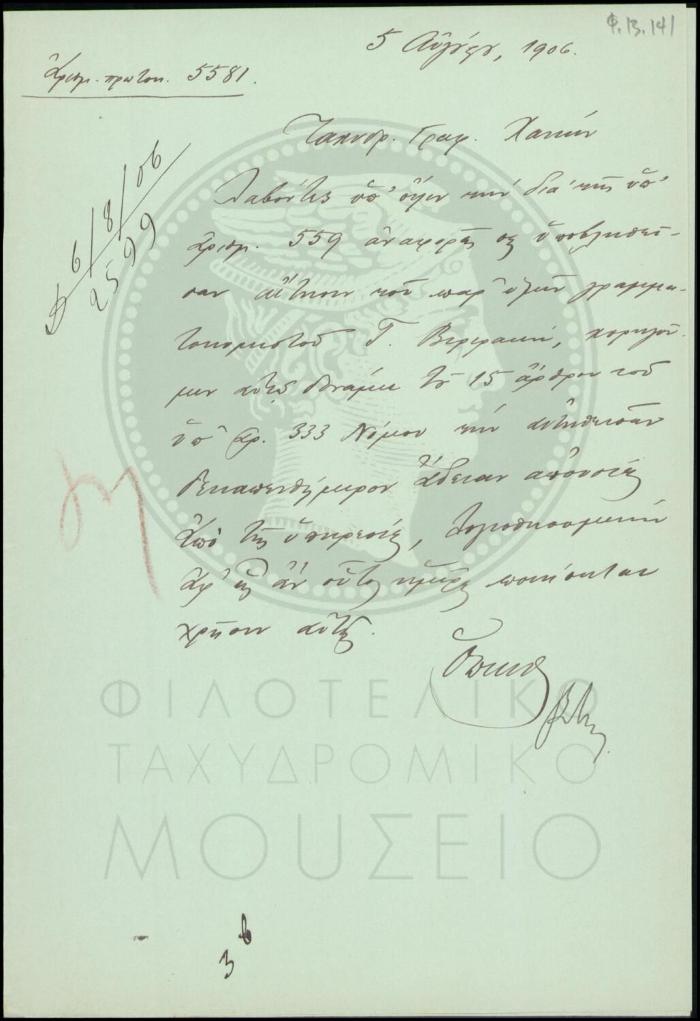 Φ.13.141
5 Αὐγούστου, 1906
Ἀριθ. πρωτοκ. 5581.
6/8/06
2599
Ταχυδρ. Γραφ. Χανίων
Λαβόντες ὑπ' ὄψει τὴν διὰ τῆς ὑπ'
ἀριθμ. 559 ἀναφορᾶς σας ὑποβληθεῖ-
σαν αἴτησιν τοῦ παρ' ὑμῖν γραμμα-
τοκομιστοῦ Γ. χορηγοῦ-
μεν αὐτῷ δυνάμει τοῦ 15 ἄρθρου τοῦ
ὑπ' ἀρ. 333 Νόμου τὴν αἰτηθεῖσαν
δεκαπενθήμερον ἄδειαν ἀπουσίας
ἀπὸ τῆς ὑπηρεσίας,
ἀφ' ἧς ἂν οὗτος ἡμέρας ποιήσηται
χρῆσιν αὐτῆς.
ΦΙΛΟΤΕΛΙΚΟ
ΤΑΧΥΔΡΟΜΙΚΟ
ΜΟΥΣΕΙΟ